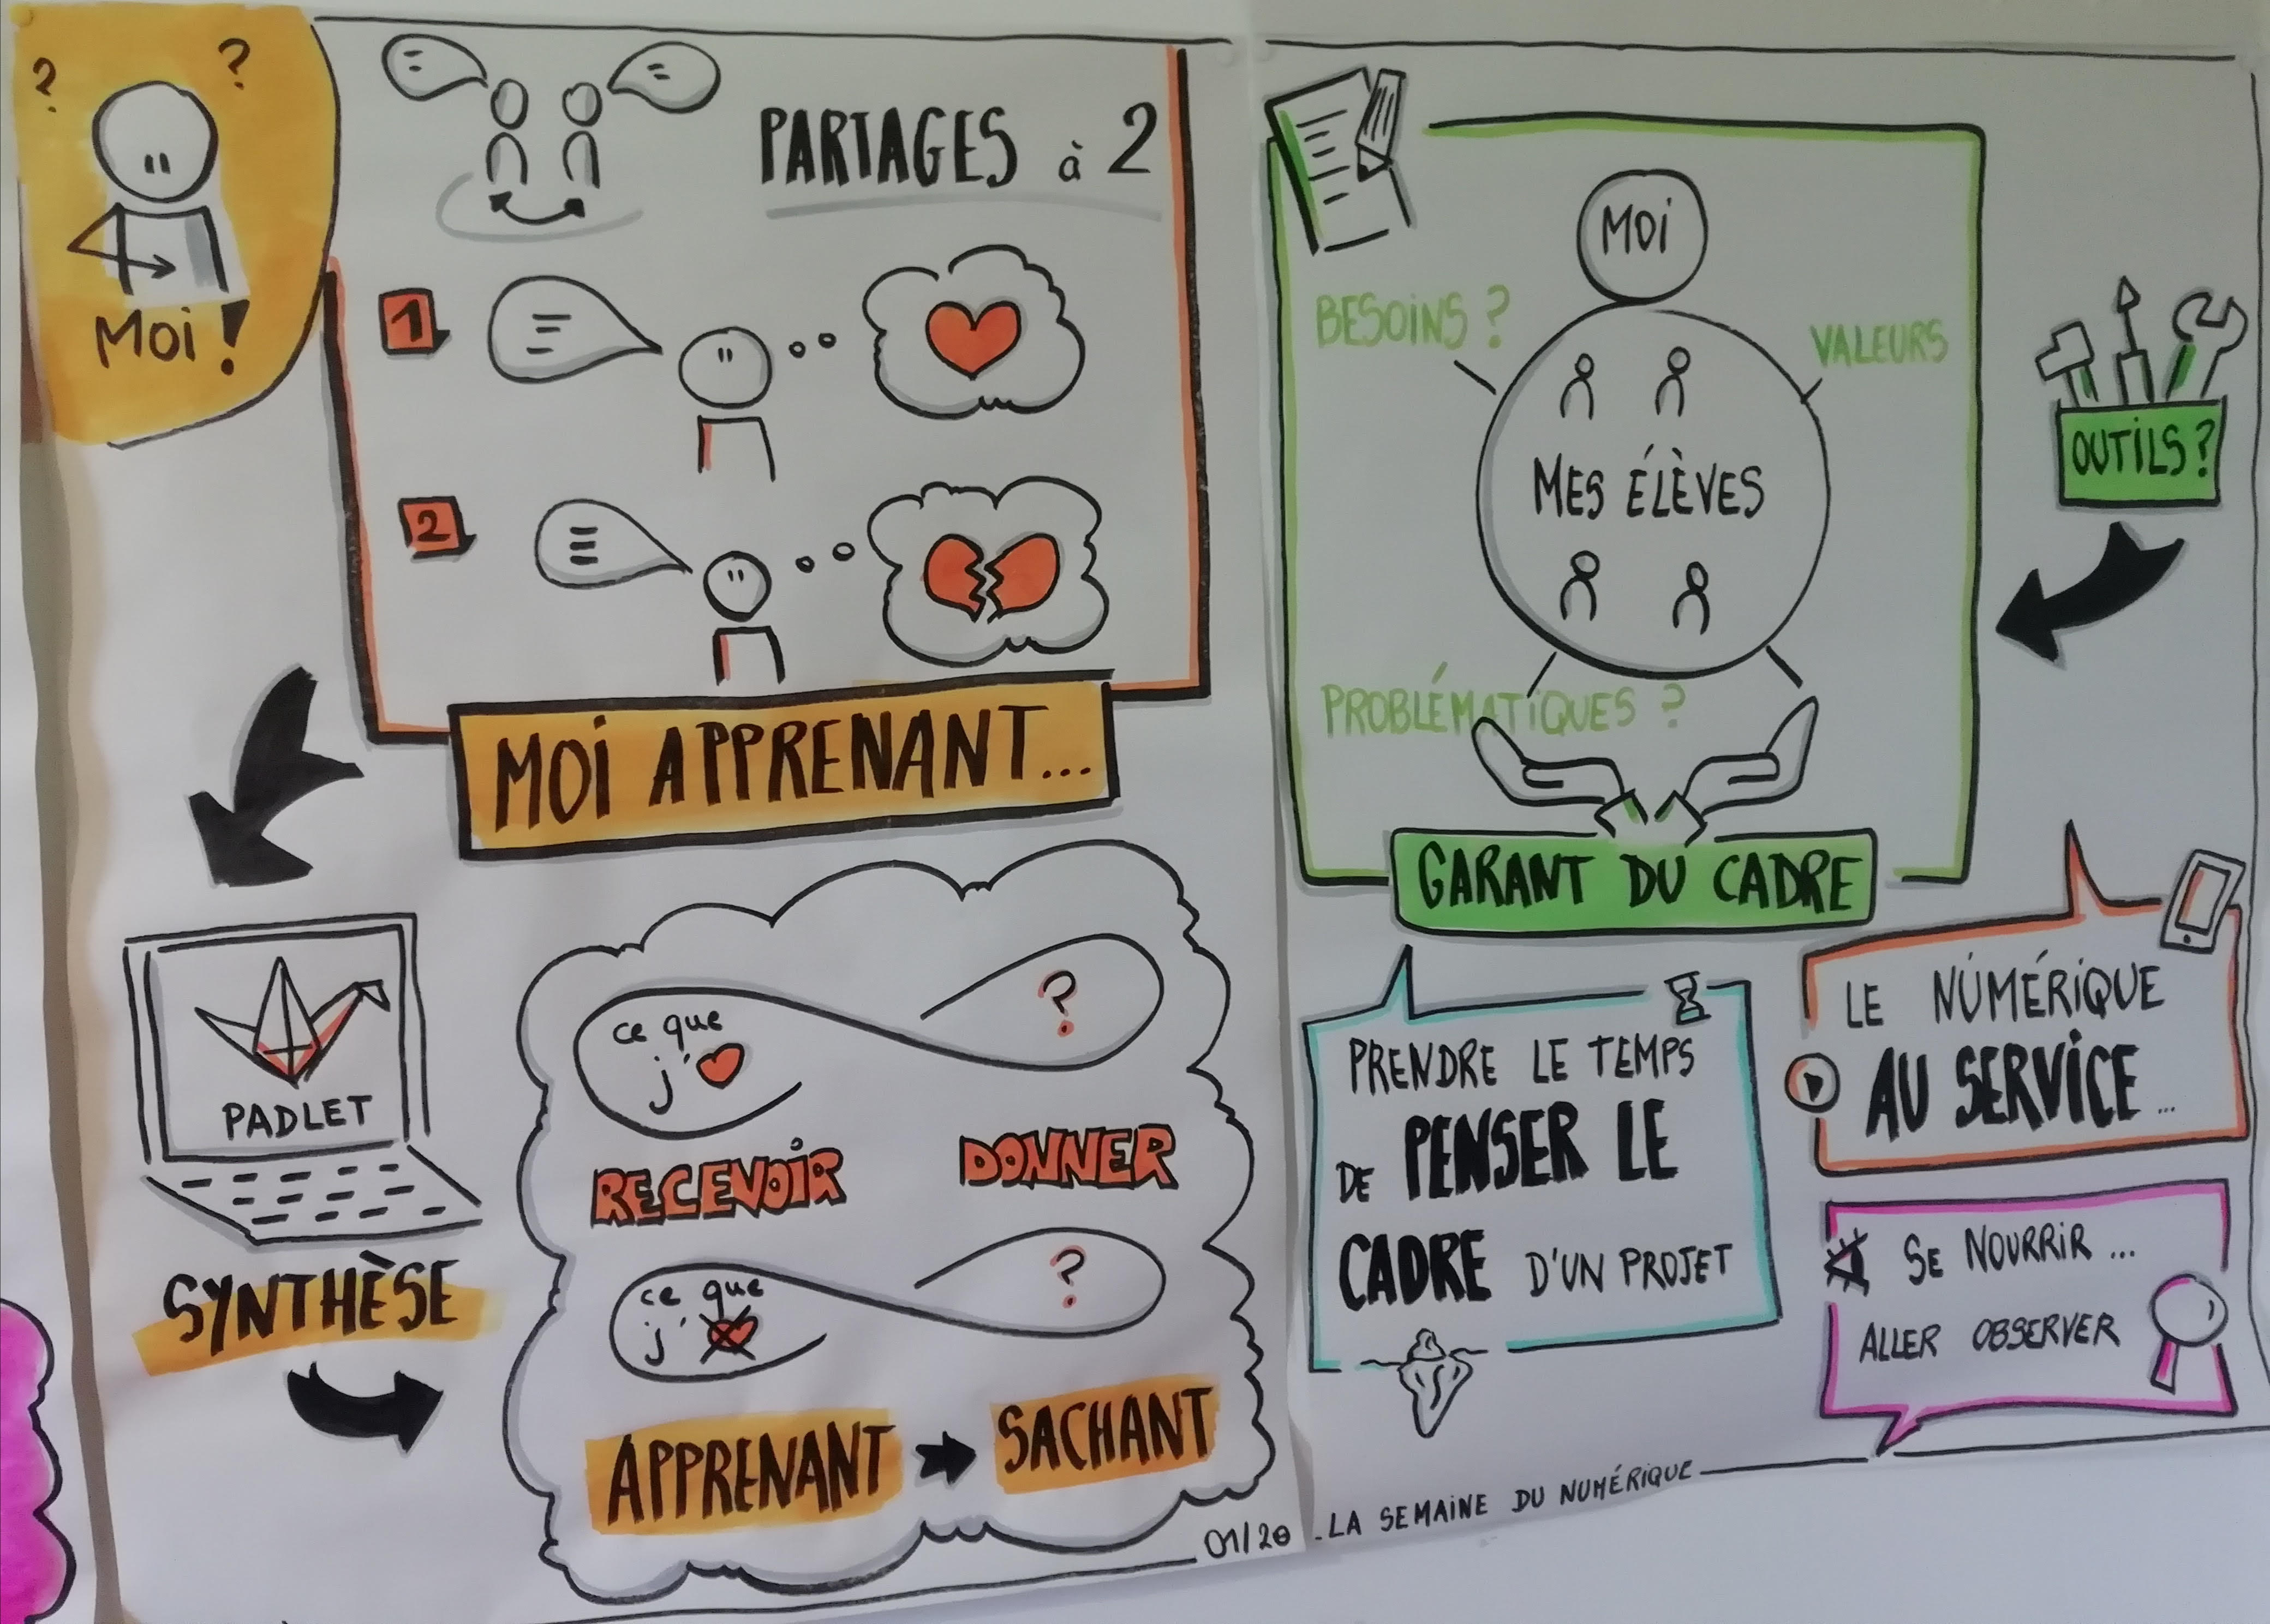 ? ?
MOI !
PARTAGES à 2
1
2
MOI APPRENANT...
PADLET
SYNTHÈSE
ce que
j'
?
RECEVOIR
DONNER
ce que
j'
?
APPRENANT
SACHANT
01/20
MOI
BESOINS ?
VALEURS
MES ÉLÈVES
PROBLÉMATIQUES ?
GARANT DU CADRE
OUTILS ?
PRENDRE LE TEMPS
DE PENSER LE
CADRE D'UN PROJET
LE NUMÉRIQUE
AU SERVICE...
SE NOURRIR...
ALLER OBSERVER
- LA SEMAINE DU NUMÉRIQUE